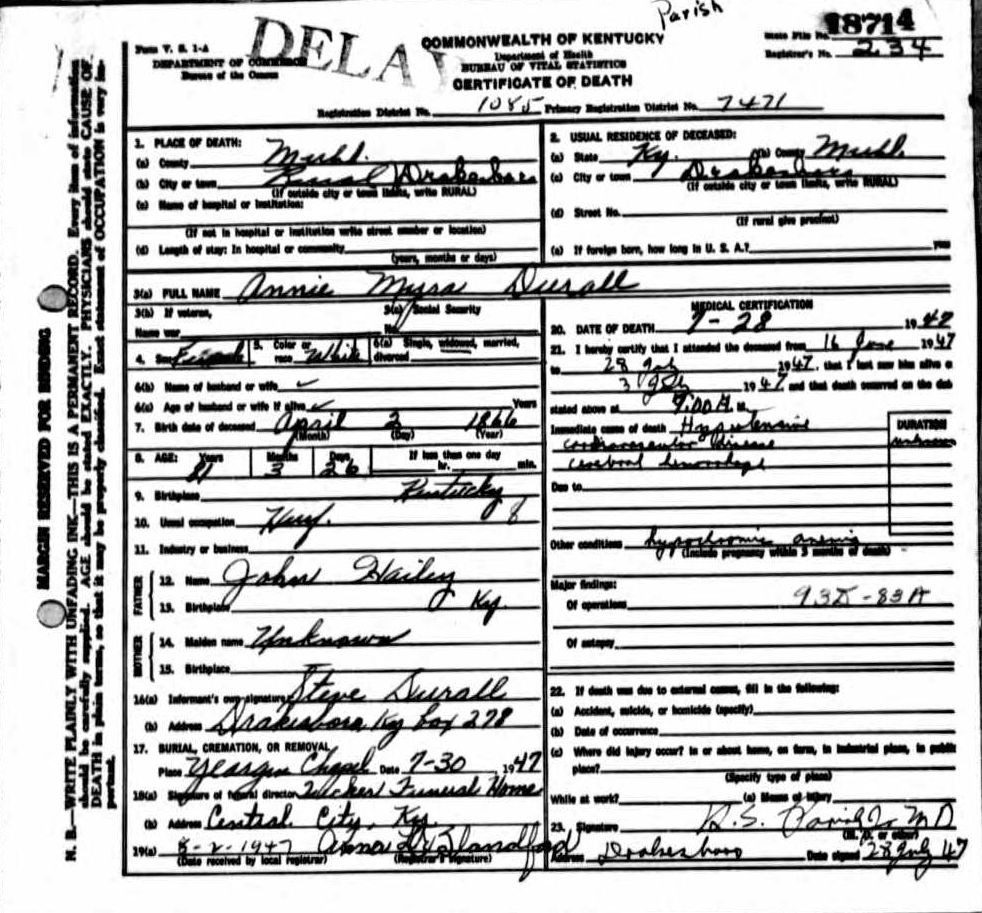 Parish
DELA
18714
Form V. S. 1-A
DEPARTMENT OF COMMERCE
Bureau of the Census
COMMONWEALTH OF KENTUCKY
Department of Health
BUREAU OF VITAL STATISTICS
CERTIFICATE OF DEATH
State File No.
Registrar's No. 234
Registration District No. 1085 Primary Registration District No. 7471
MARGIN RESERVED FOR BINDING
N. B.—WRITE PLAINLY WITH UNFADING INK—THIS IS A PERMANENT RECORD. Every item of information
should be carefully supplied. AGE should be stated EXACTLY. PHYSICIANS should state CAUSE OF
DEATH in plain terms, so that it may be properly classified. Exact statement of OCCUPATION is very im-
portant.
1. PLACE OF DEATH:
(a) County Muhl.
(b) City or town Rural Drakesboro
(If outside city or town limits, write RURAL)
(c) Name of hospital or institution:
(If not in hospital or institution write street number or location)
(d) Length of stay: In hospital or community
(years, months or days)
2. USUAL RESIDENCE OF DECEASED:
(a) State Ky. (b) County Muhl.
(c) City or town Drakesboro
(If outside city or town limits, write RURAL)
(d) Street No.
(If rural give precinct)
(e) If foreign born, how long in U. S. A.? yrs
3(a) FULL NAME Annie Myra Durall
3(b) If veteran,
Name war
3(c) Social Security
No.
4. Sex Female 5. Color or race White 6(a) Single, widowed, married, divorced
6(b) Name of husband or wife ✓
6(c) Age of husband or wife if alive ✓ Years
7. Birth date of deceased April 2 1866
(Month) (Day) (Year)
8. AGE: Years 81 Months 3 Days 26 If less than one day hr. min.
9. Birthplace Kentucky
10. Usual occupation
11. Industry or business
FATHER
12. Name John Hailey
13. Birthplace Ky.
MOTHER
14. Maiden name Unknown
15. Birthplace
16(a) Informant's own signature Steve Durall
(b) Address Drakesboro Ky box 278
17. BURIAL, CREMATION, OR REMOVAL
Place Yeargin Chapel Date 7-30 1947
18(a) Signature of funeral director Tucker Funeral Home
(b) Address Central City, Ky.
19(a) 8-2-1947
(Date received by local registrar) (Registrar's signature)
MEDICAL CERTIFICATION
20. DATE OF DEATH 7-28 1947
21. I hereby certify that I attended the deceased from 16 June 1947
to 28 July 1947, that I last saw him alive on
3 July 1947 and that death occurred on the date
stated above at 9:00 A. M.
Immediate cause of death Hypertensive
cardiovascular disease
cerebral hemorrhage
DURATION
unknown
Due to
Other conditions hypochromic anemia
(Include pregnancy within 3 months of death)
Major findings:
Of operations 93D-83A
Of autopsy
22. If death was due to external causes, fill in the following:
(a) Accident, suicide, or homicide (specify)
(b) Date of occurrence
(c) Where did injury occur? In or about home, on farm, in industrial place, in public
place?
(Specify type of place)
While at work? (e) Means of injury
23. Signature H.S. Parish Jr MD
(M. D. or other)
Address Drakesboro Date signed 28 July 47